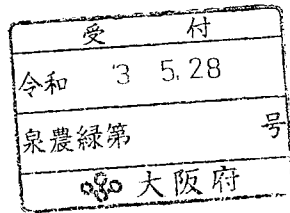 受付
令和 '3 5.28
泉農緑第 号
大阪府